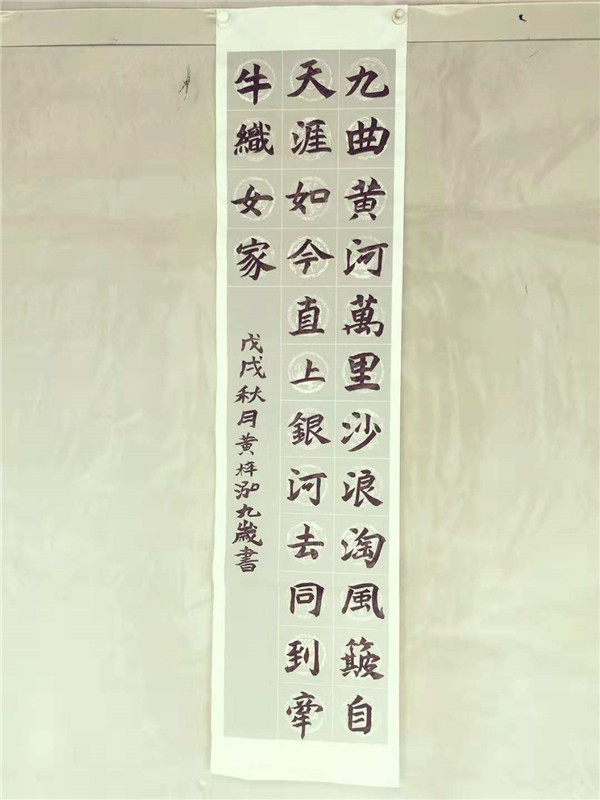 九曲黄河萬里沙浪淘風簸自
天涯如今直上銀河去同到牽
牛織女家
戊戌秋月黄梓泓九歲書